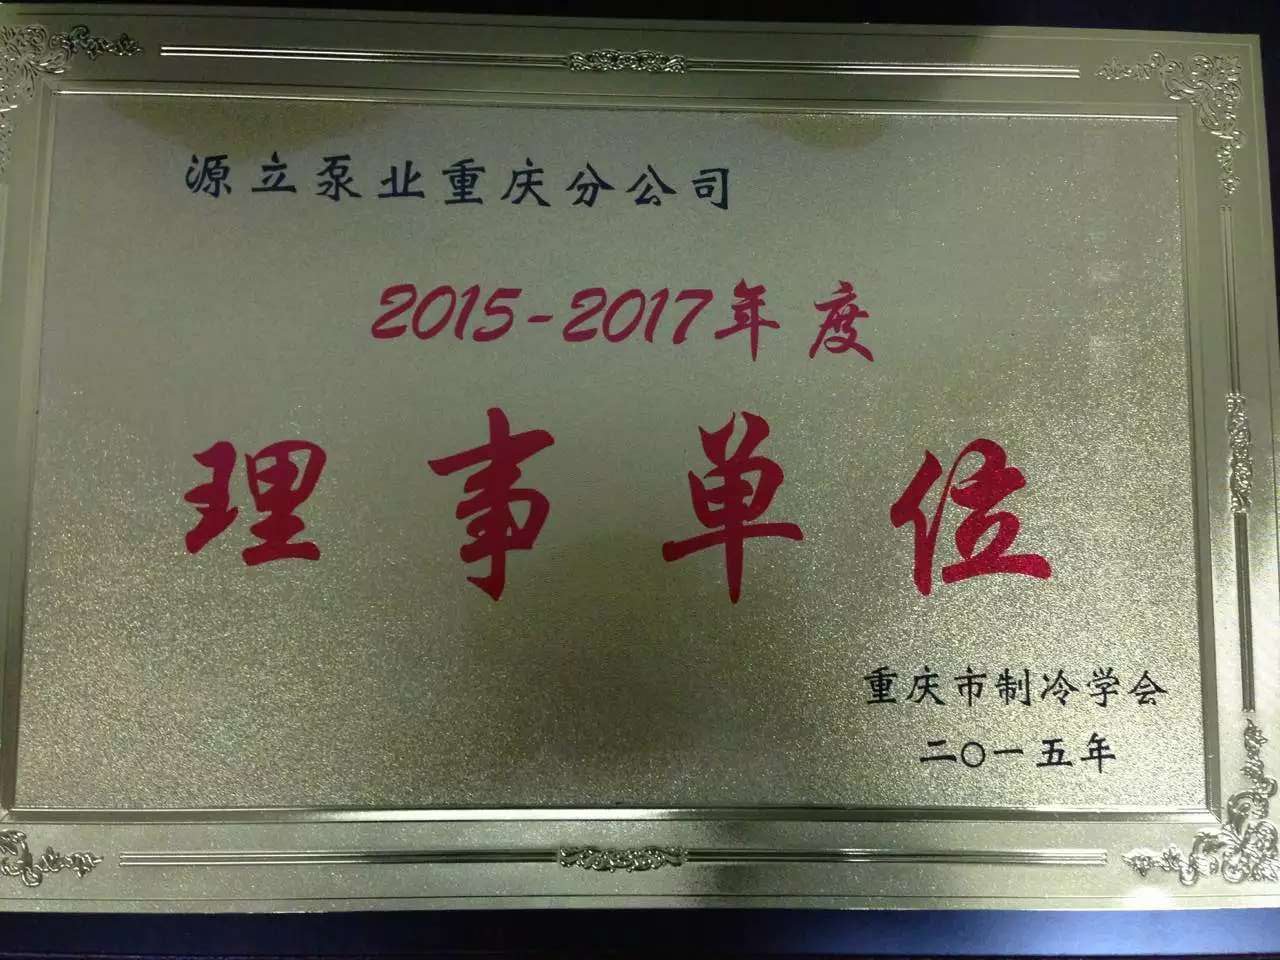 源立泵业重庆分公司
2015-2017年度
理事单位
重庆市制冷学会
二〇一五年